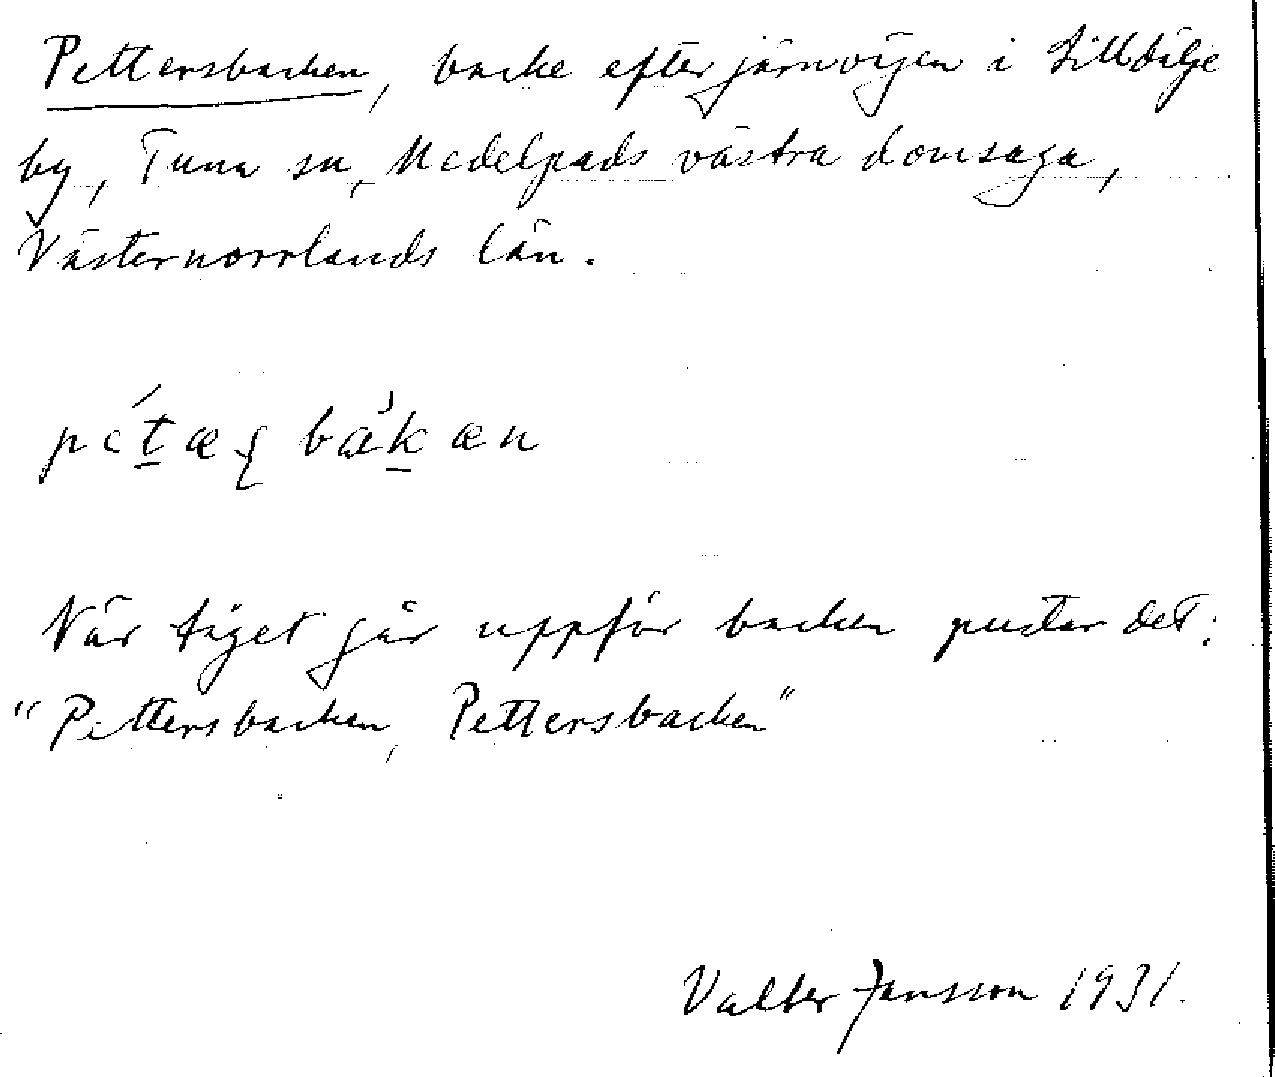 Pettersbacken, backe efter järnvägen i Lilldälje
by, Tuna sn, Medelpads västra domsaga,
Västernorrlands län.
bakæn
När tåget går uppför backen pustar det:
"Pettersbacken, Pettersbacken"
Valter Jansson 1931.